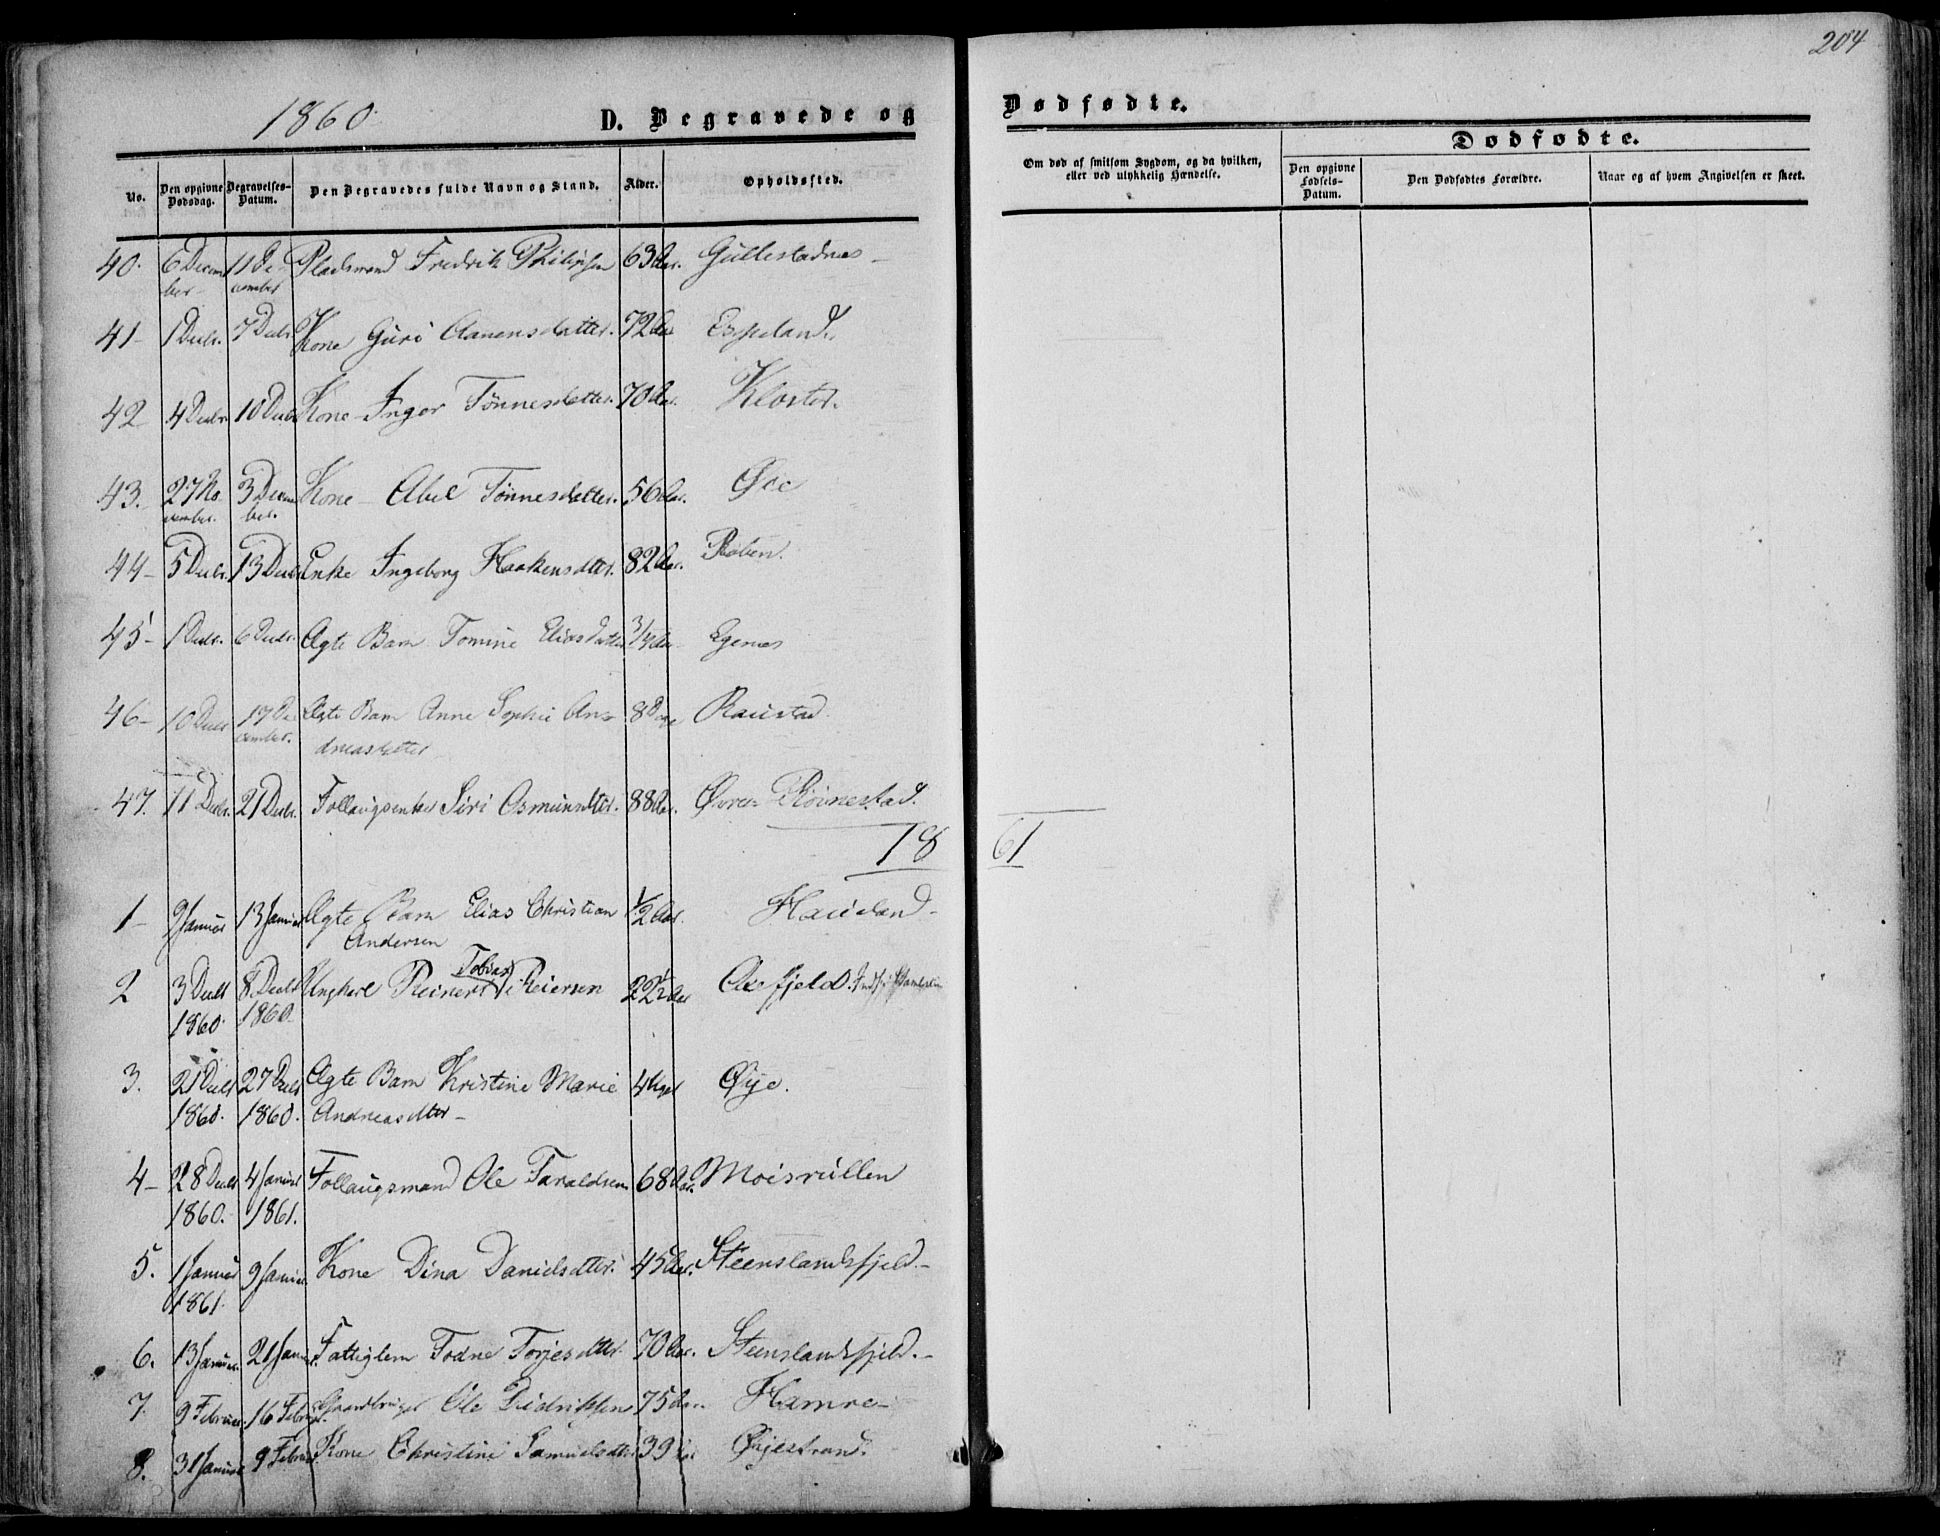 204
1860
D. Begravede og
Dødfødte.
No.
Den opgivne Dødsdag.
Begravelses-Datum.
Den Begravedes fulde Navn og Stand.
Alder.
Opholdssted.
Om død af smitsom Sygdom, og da hvilken,
eller ved ulykkelig Hændelse.
Dødfødte.
Den opgivne Fødsels-Datum.
Den Dødfødtes Forældre.
Naar og af hvem Angivelsen er skeet.
40. 6 Decem 11 De Pladsmand Fredrik Philipsen 63 Aar. Gullestadnes
ber cember
41 1 Decbr. 7 Decbr. Kone Guri Aanensdatter. 72 Aar Espeland.
42 4 Decbr 10 Decbr Kone Inger Tönnesdatter. 70 Aar. Kloster.
43. 27 No 3 Decem Kone Abel Tönnesdatter. 56 Aar. Øie
vember. ber.
44 5 Decbr. 13 Decbr. Enke Ingeborg Haakensdtter. 82 Aar.
45 1 Decbr. 6 Decbr. Ægte Barn Tomine Eliasdatter 3/4 Aar Egenes
46 10 Decbr 17 De Ægte Barn Anne Sophie An 8 Dage Raustad
cember. dreasdatter
47. 11 Decbr. 21 Decbr. Follaugsenke Siri Osmundsdtter. 88 Aar. Øvre Röinestad.
18 61
1 9 Januar 13 Januar Ægte Barn Elias Christian 1/2 Aar. Haueland
Andersen
2 3 Decbr 8 Decbr Ungkarl Reinert Tobias Reiersen 22 1/2 Aar
1860. 1860.
3. 21 Decbr 27 Decbr Ægte Barn Kristine Marie 4 Uger Øye.
1860. 1860. Andreasdtter
4 28 Decbr 4 Januar Follaugsmand Ole Taraldsen 68 Aar. Moisrullen
1860. 1861.
5. 1 Januar 9 Januar Kone Dina Danielsdtter. 45 Aar. Steenslandsfjeld.
1861.
6. 13 Januar. 21 Januar. Fattiglem Todne Torjesdtter 70 Aar. Steenslandsfjeld.
7. 9 Februar. 16 Februar. Gaardbruger Ole Didriksen 75 Aar. Hamre
8. 31 Januar 9 Februar Kone Christine Samuelsdtter 39 Aar Øyestrand.